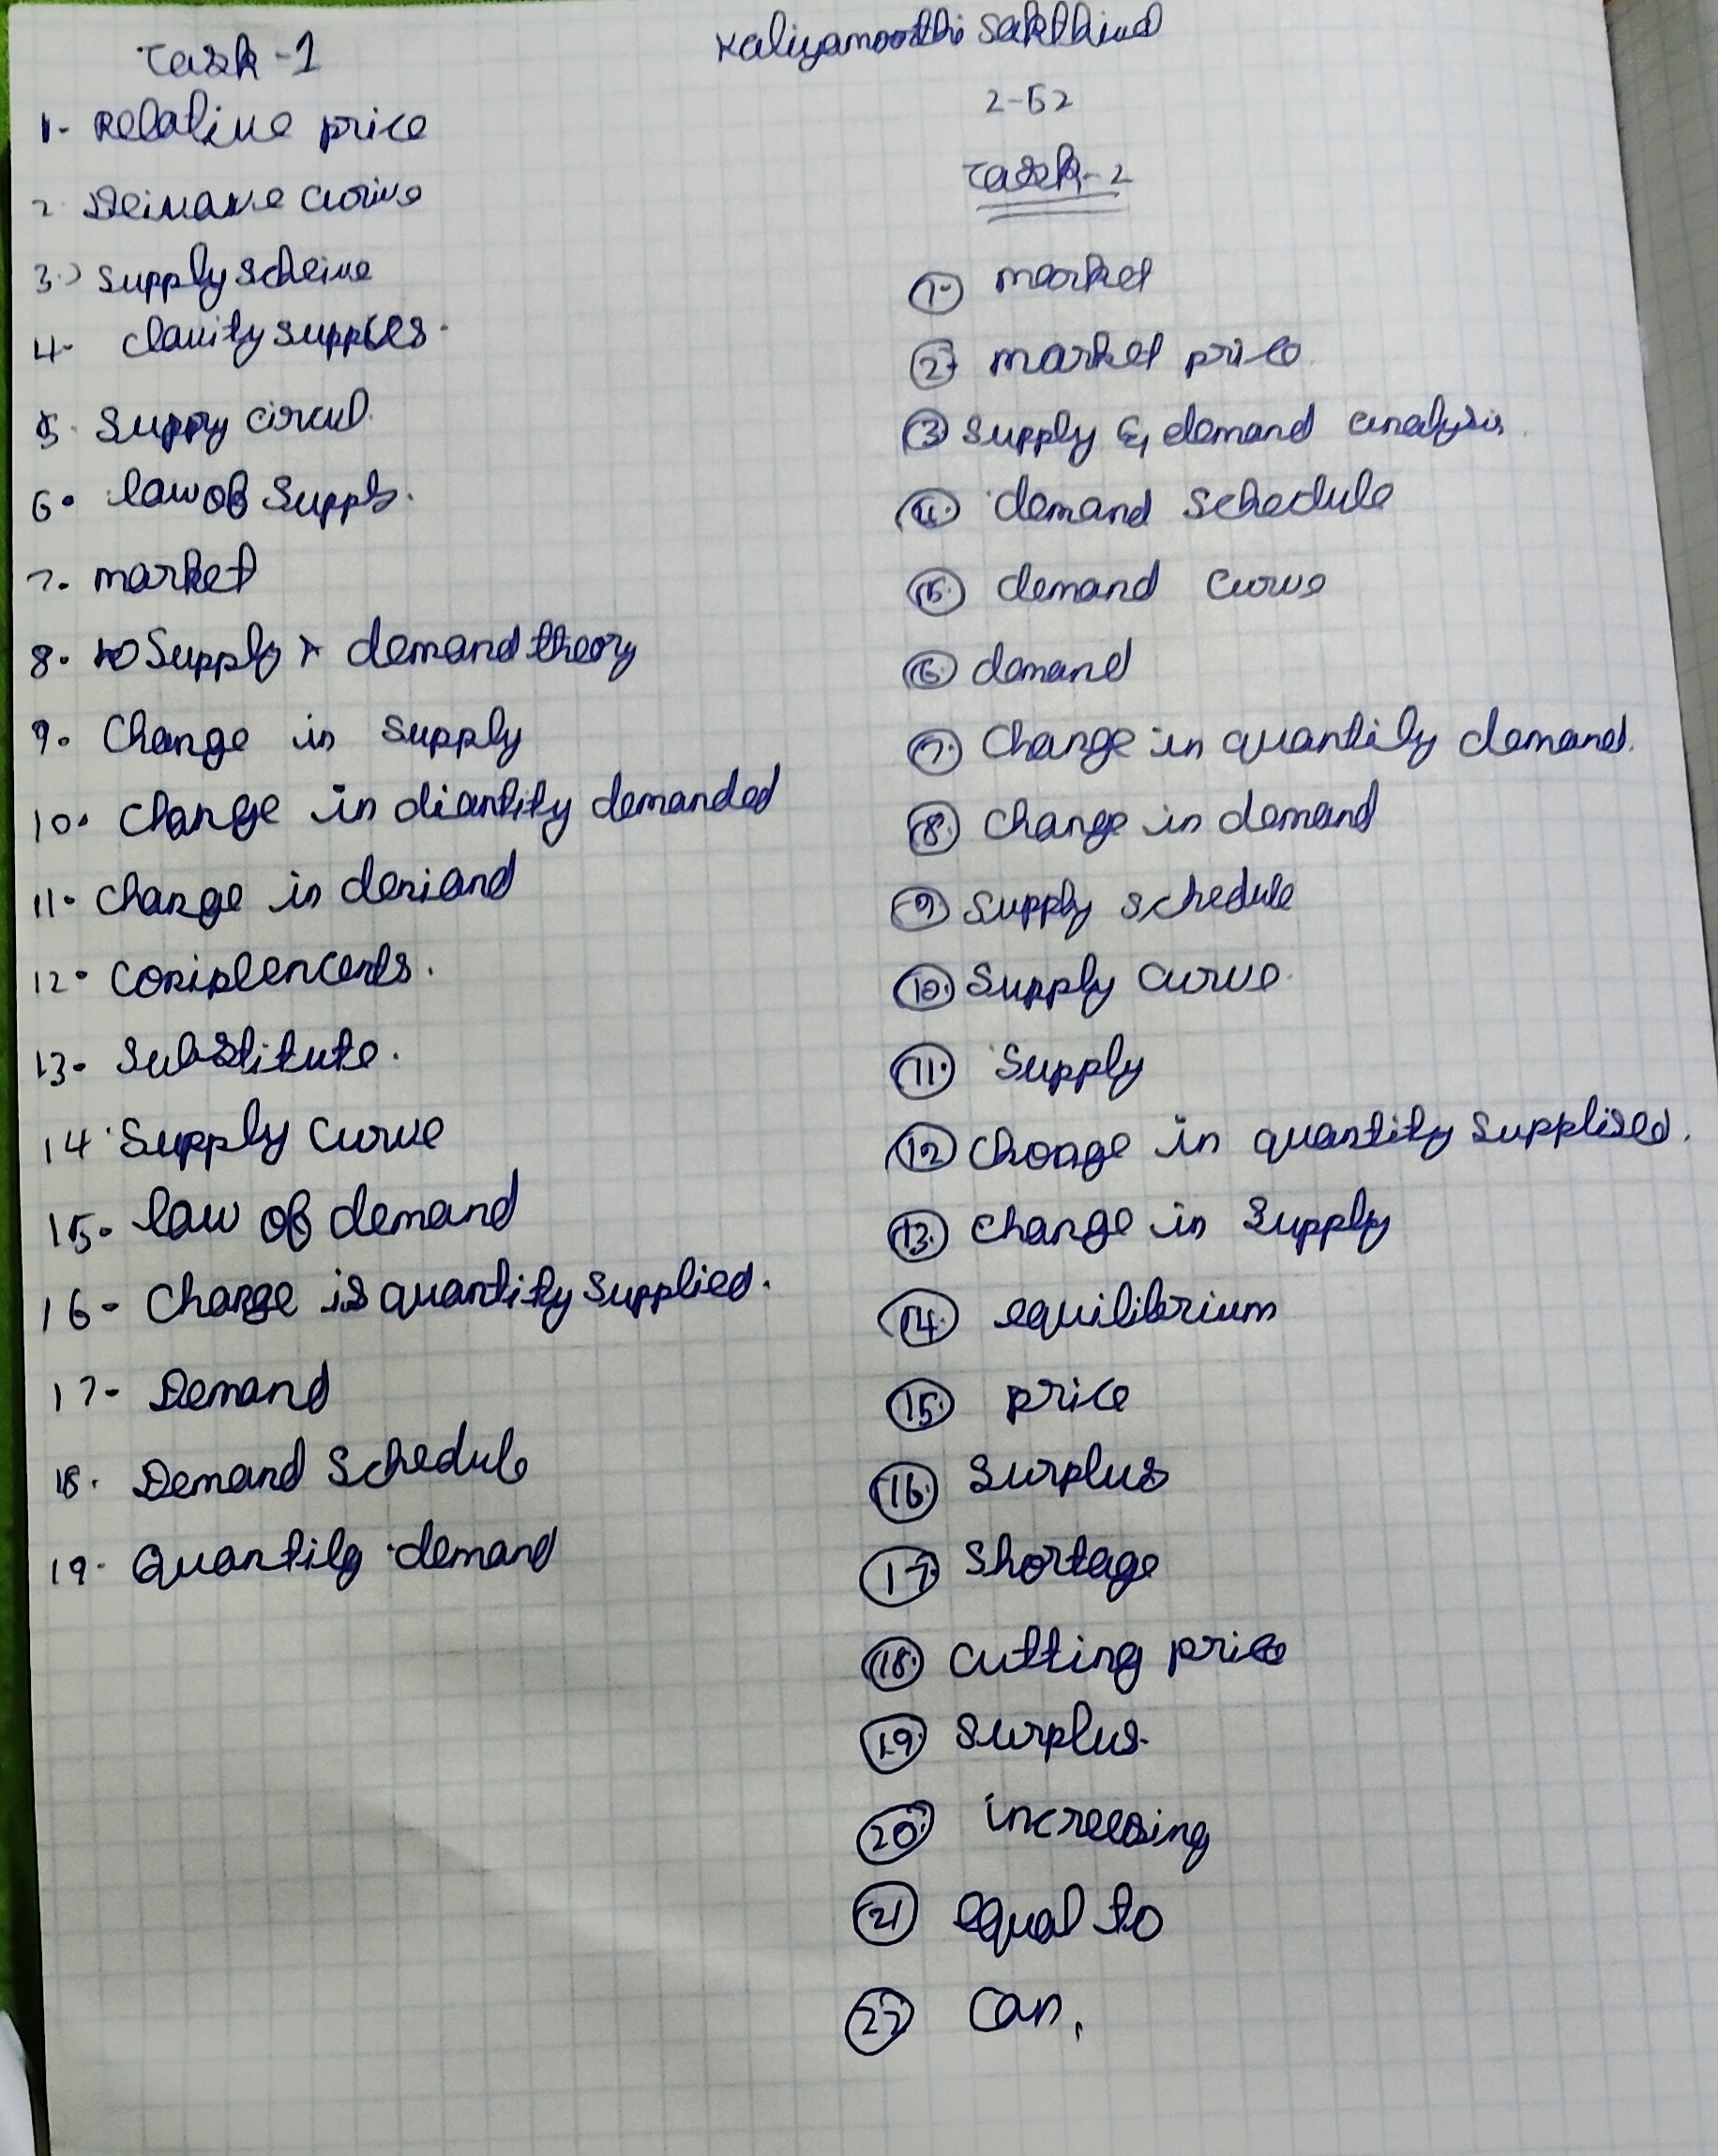 Task-1
1- Relative price
2
3.) Supply scheive
4-
5. Suppry circul.
6. law of Suppls.
7. market
8. Supply & demand theory
9. Change in supply
10. Change in diantity demanded
11. Change in deniand
12. Coniplencents.
13- Substitute.
14. Supply curve
15. law of demand
16- Change is quantity supplied.
17- Demand
18. Demand Schedule
19. Quantily demand
Kaliyamoorthi
2-52
Task-2
1. market
2. market price.
3. Supply & demand analysis.
4. demand schedule
5. demand curve
6. demand
7. Change in quantily demand.
8. Change in demand
9. Supply schedule
10. Supply curve.
11. Supply
12. Choage in quantity supplised.
13. Change in Supply
14. equilibrium
15. price
16. Surplus
17. Shortage
18. cutting price
19. surplus.
20. increasing
21 equal to
22 can,